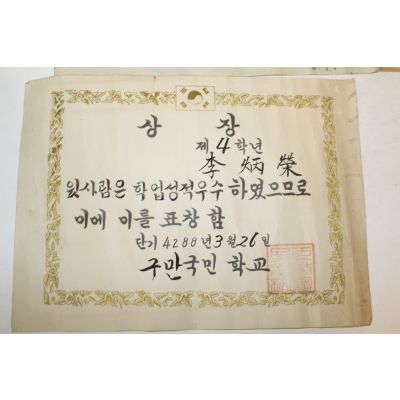 상 장
제 4 학년
李 炳 榮
윗사람은 학업성적우수 하였으므로
이에 이를 표창 함
단기 4288 년 3 월 26 일
구만국민 학교